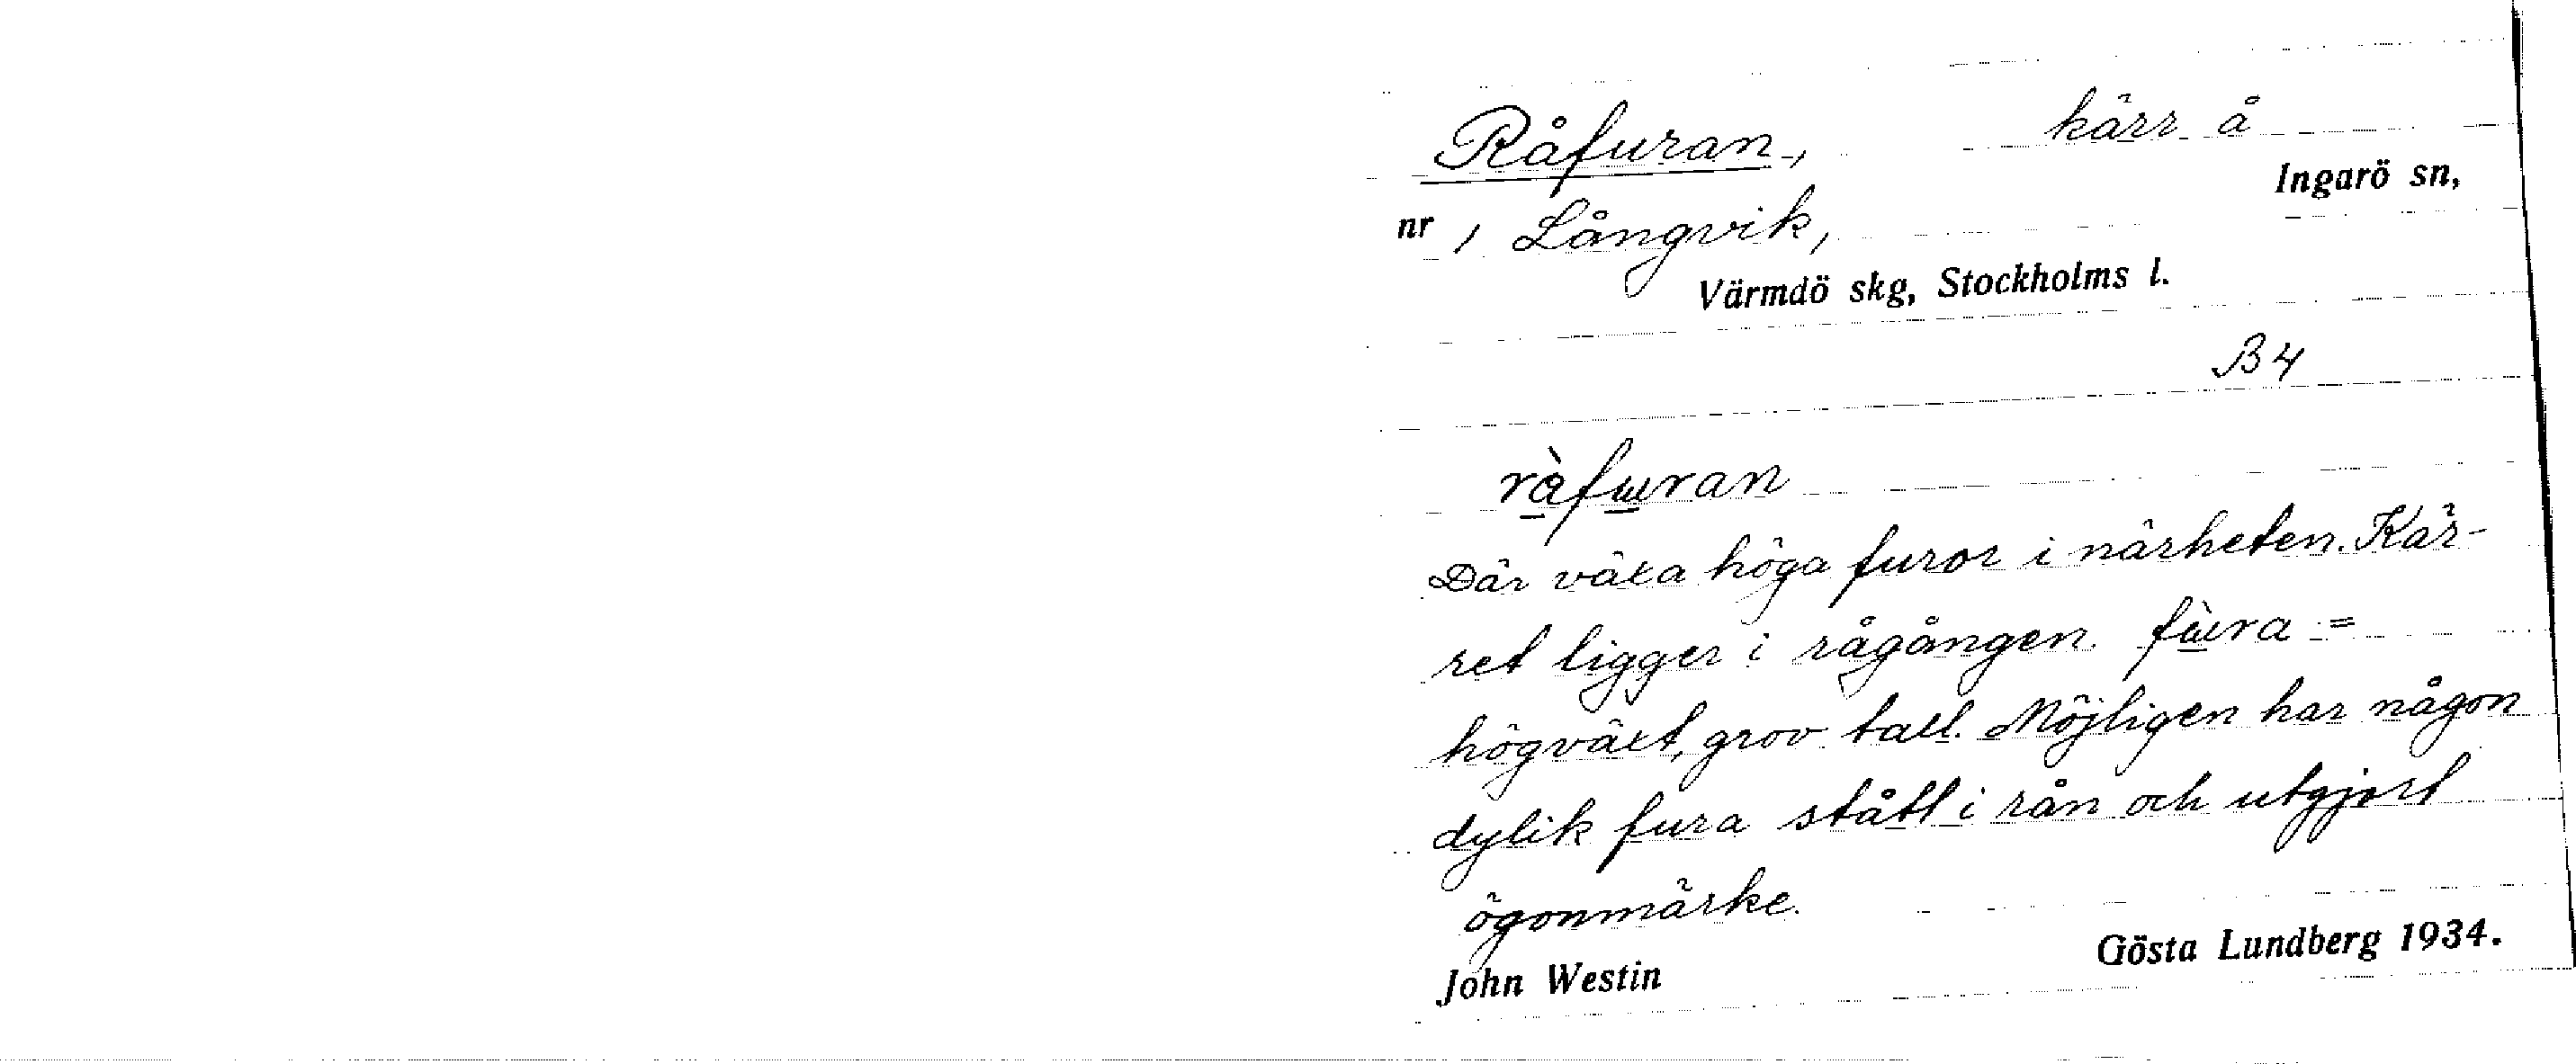 Råfuran, kärr å
Ingarö sn,
nr 1 Långvik,
Värmdö skg, Stockholms l.
B4
ràfuran
Där växa höga furor i närheten. Kär-
ret ligger i rågången. fùra =
högväxt, grov tall. Möjligen har någon
dylik fura stått i rån och utgjort
ögonmärke.
John Westin Gösta Lundberg 1934.